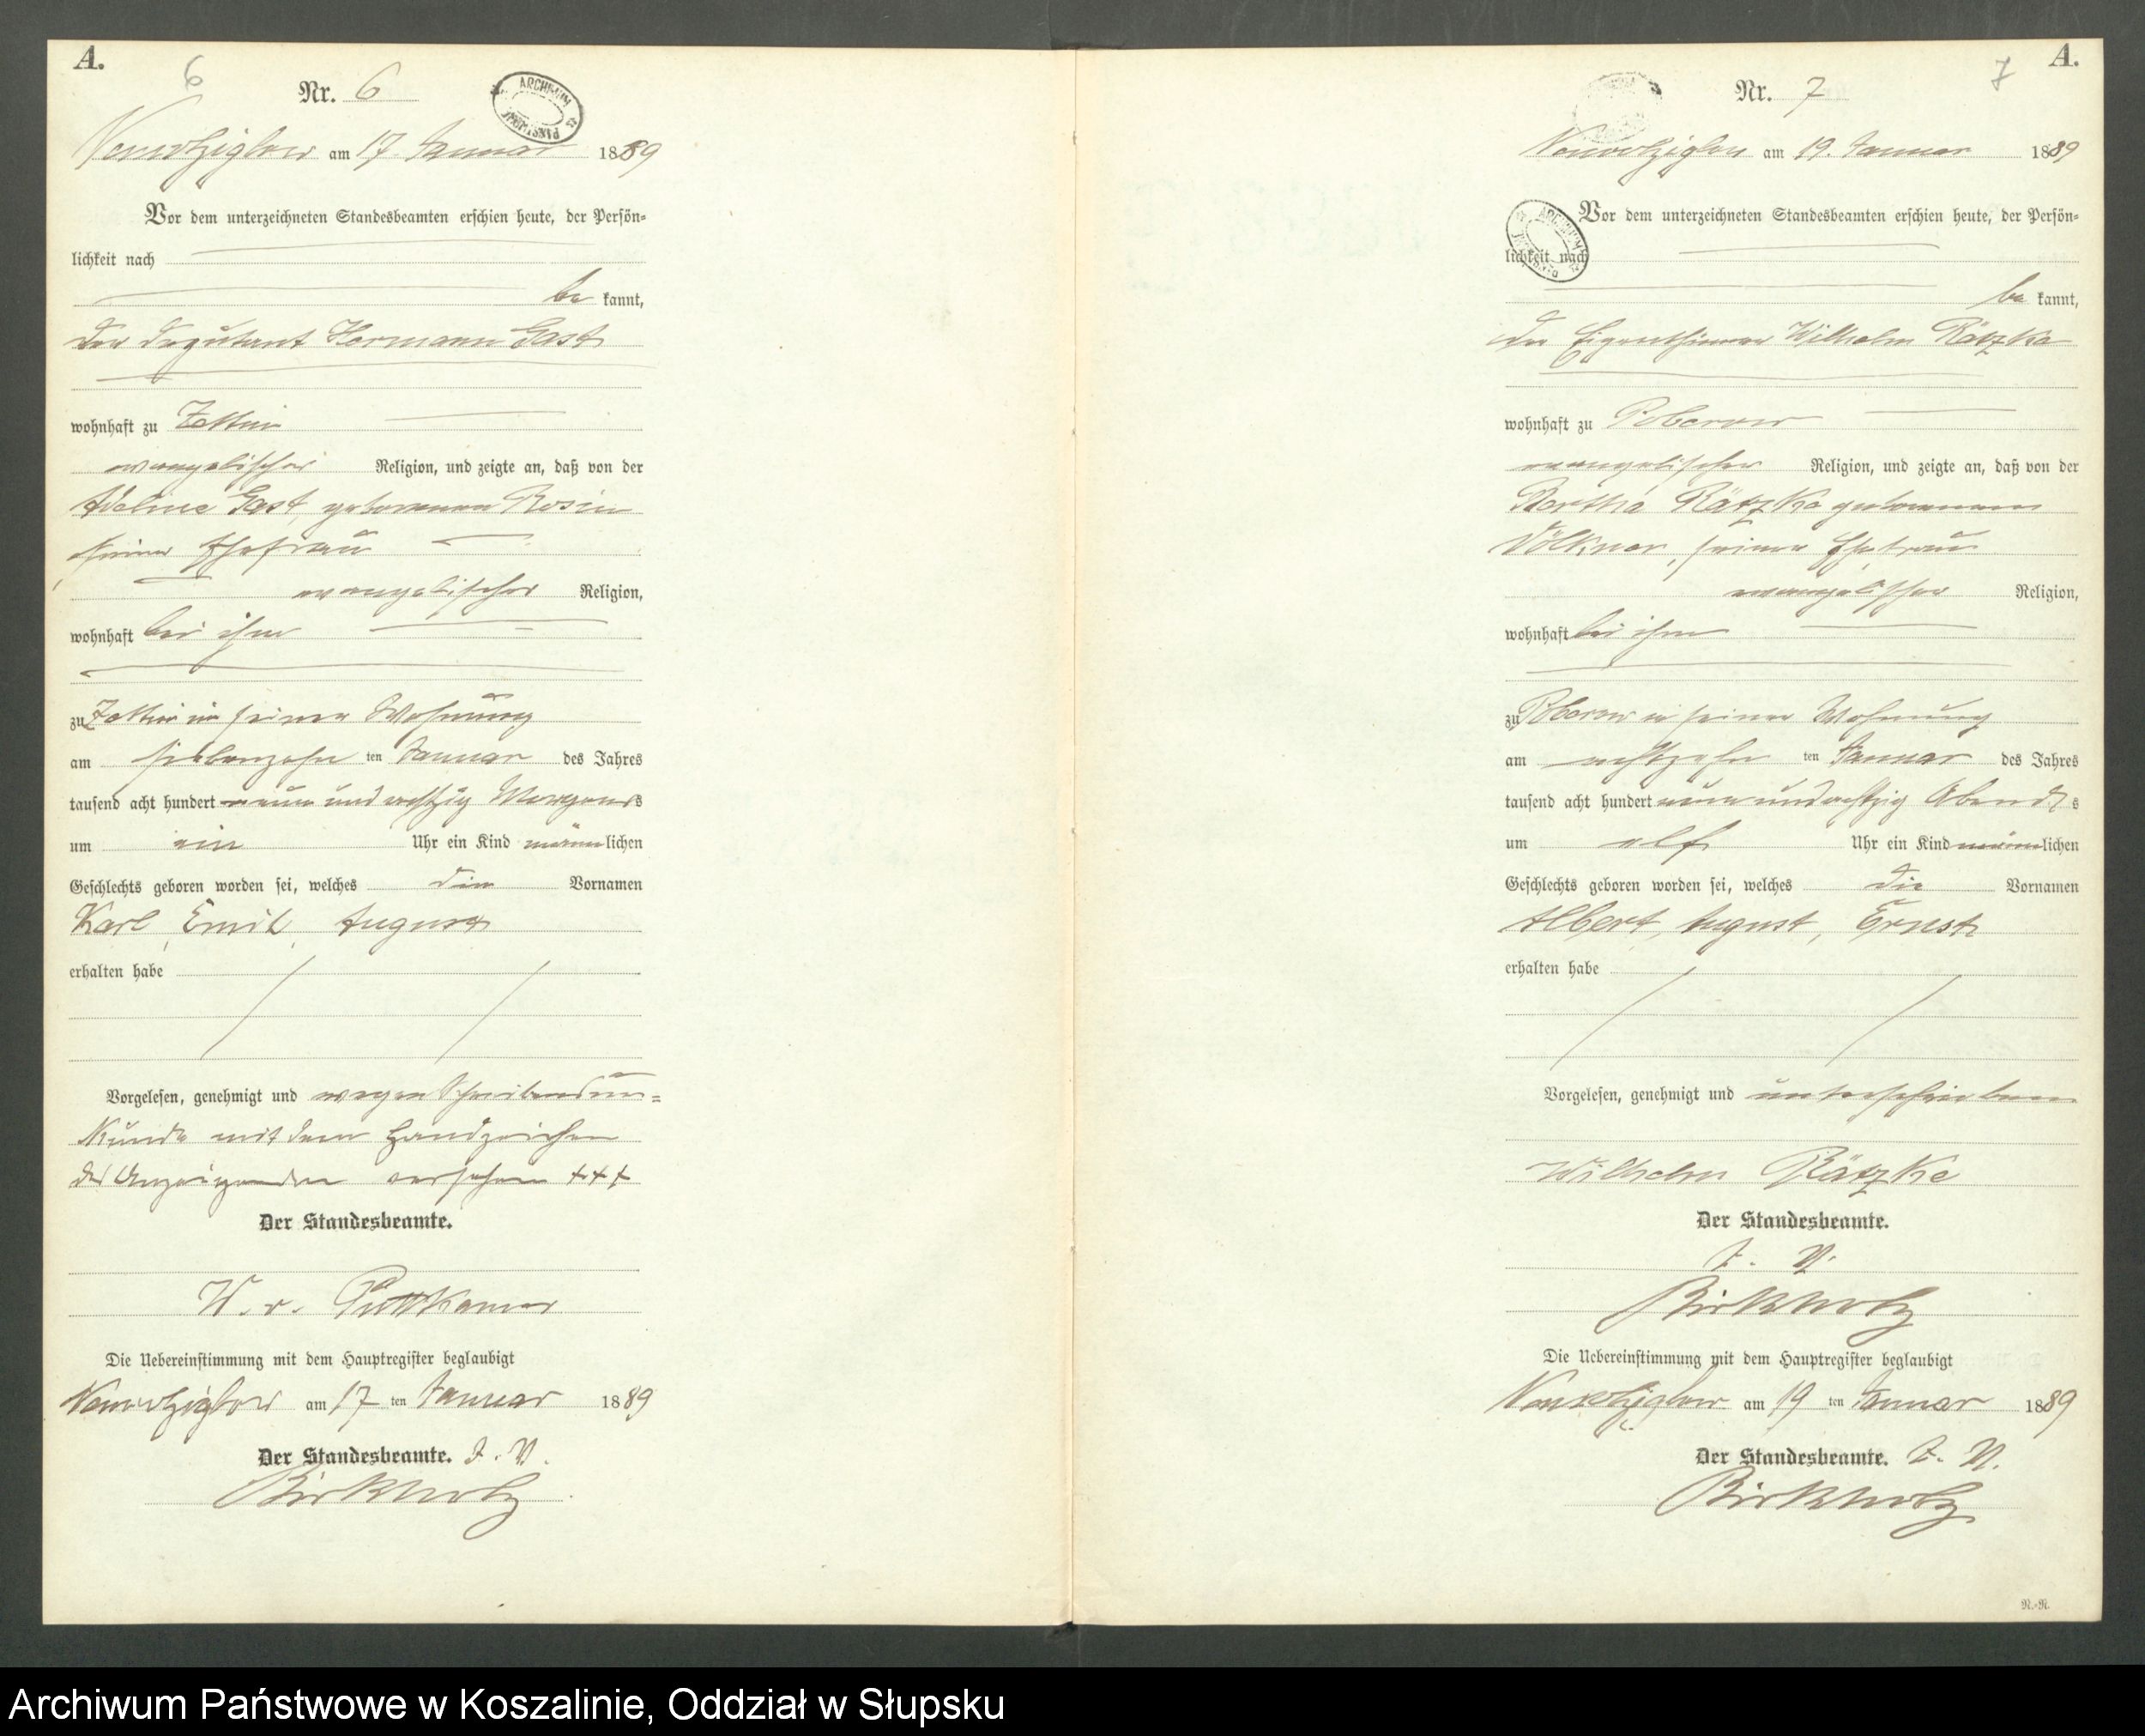 A.
6
Nr. 6
ARCHIWUM PAŃSTWOWE
am 17. Januar 1889
Vor dem unterzeichneten Standesbeamten erschien heute, der Persön-
lichkeit nach
be kannt,
der Deputant Hermann Gast
wohnhaft zu Zettin
evangelischer Religion, und zeigte an, daß von der
Adeline Gast, geborenen Rosin
seiner Ehefrau
evangelischer Religion,
wohnhaft bei ihm
zu Zettin in seiner Wohnung
am siebenzehn ten Januar des Jahres
tausend acht hundert neun und achtzig Morgens
um ein Uhr ein Kind männlichen
Geschlechts geboren worden sei, welches die Vornamen
Karl, Emil, August
erhalten habe
Vorgelesen, genehmigt und wegen Schreibensun-
kunde mit dem Handzeichen
des Anzeigenden versehen +++
Der Standesbeamte.
W. v. Puttkamer
Die Uebereinstimmung mit dem Hauptregister beglaubigt
am 17 ten Januar 1889
Der Standesbeamte. J. V.
Birkholz
A.
7
Nr. 7
am 19. Januar 1889
Vor dem unterzeichneten Standesbeamten erschien heute, der Persön-
lichkeit nach
be kannt,
der Eigenthümer Wilhelm Rätzke
wohnhaft zu Poberow
evangelischer Religion, und zeigte an, daß von der
Bertha Rätzke geborenen
Völkner, seiner Ehefrau
evangelischer Religion,
wohnhaft bei ihm
zu Poberow in seiner Wohnung
am achtzehn ten Januar des Jahres
tausend acht hundert neun und achtzig Abends
um elf Uhr ein Kind männlichen
Geschlechts geboren worden sei, welches die Vornamen
Albert, August, Ernst
erhalten habe
Vorgelesen, genehmigt und unterschrieben
Wilhelm Rätzke
Der Standesbeamte.
J. V.
Birkholz
Die Uebereinstimmung mit dem Hauptregister beglaubigt
am 19 ten Januar 1889
Der Standesbeamte. J. V.
Birkholz
R.-R.
Archiwum Państwowe w Koszalinie, Oddział w Słupsku